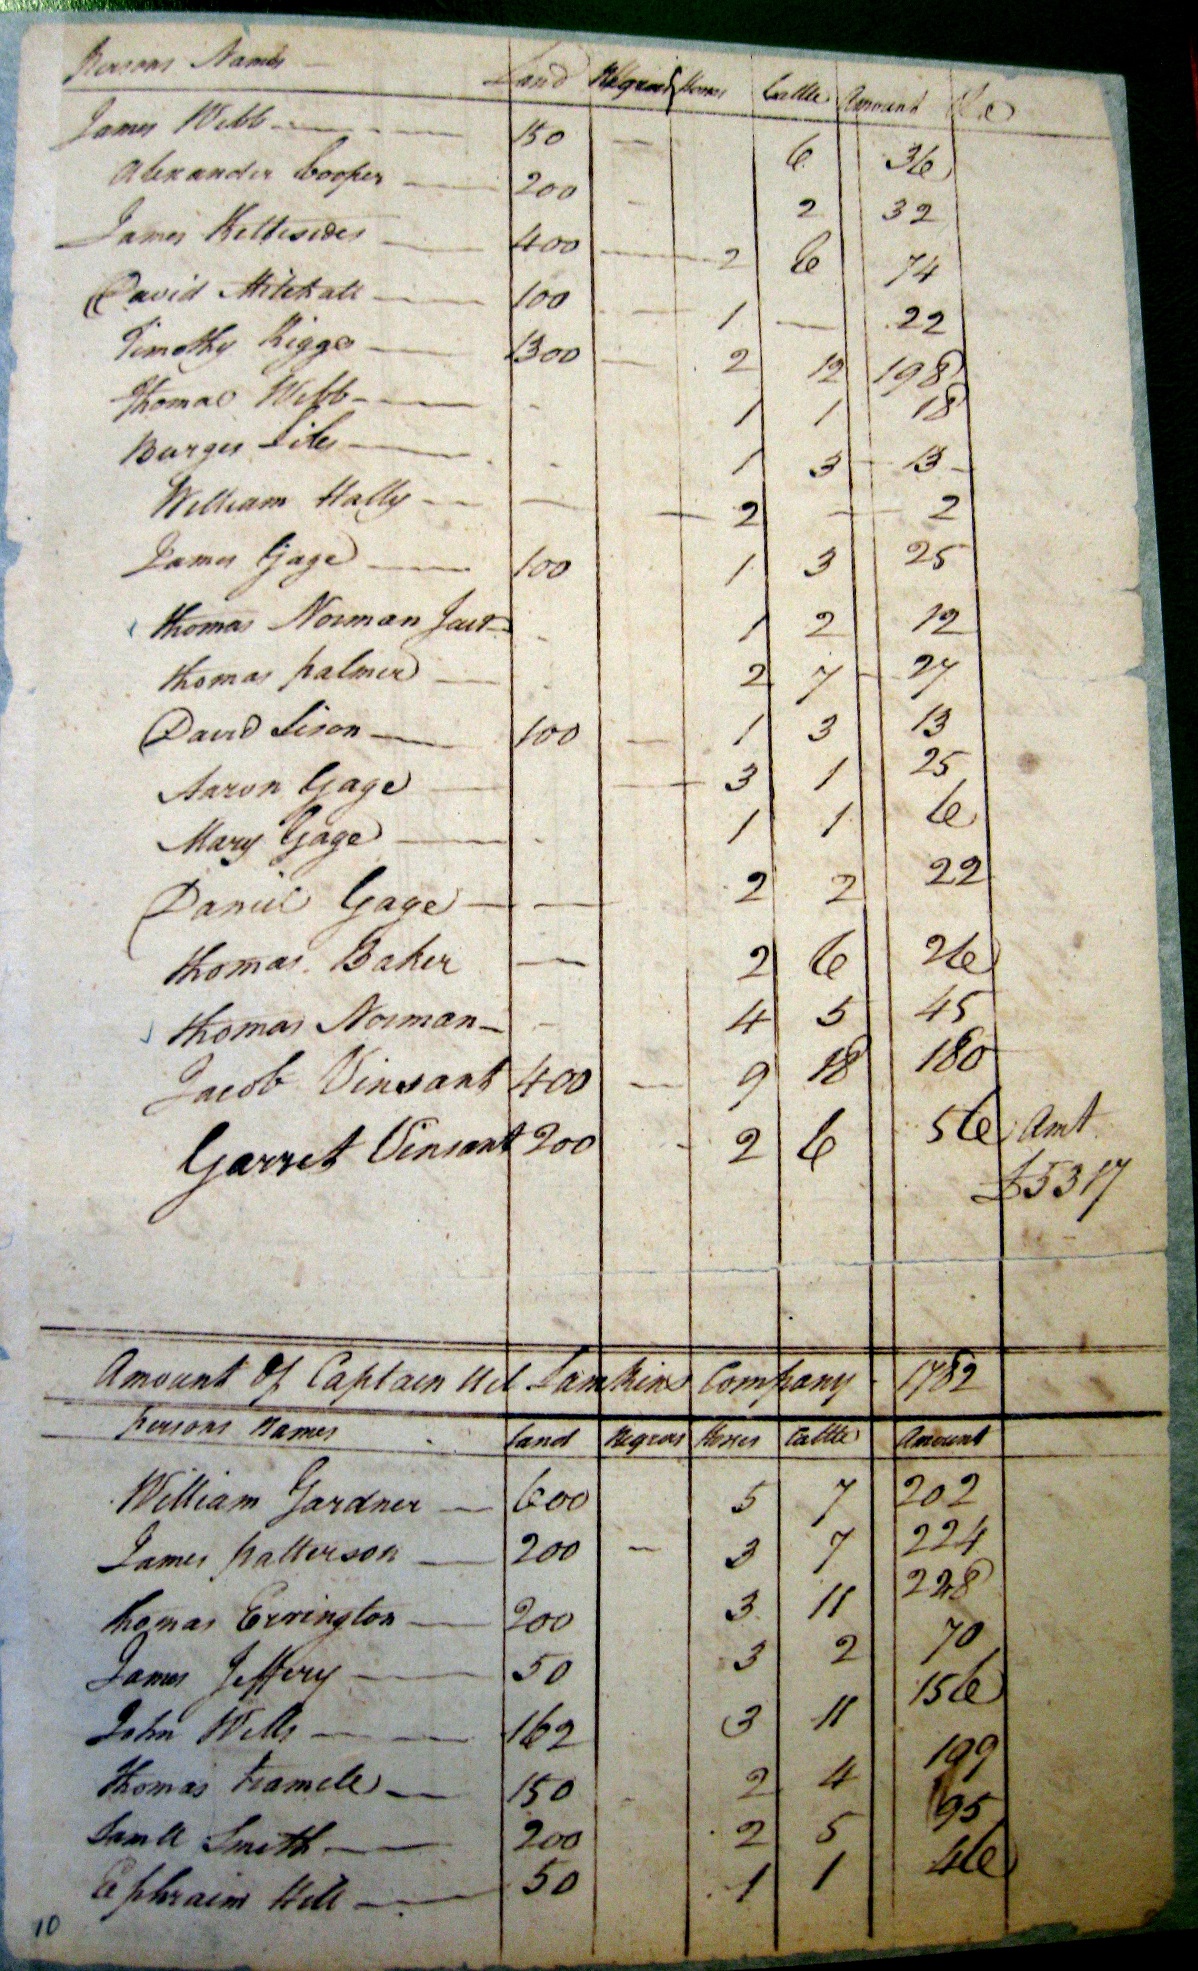 Persons Names Land Negroes Horses Cattle Amount
James Webb 150 — 6 36
Alexander Cooper 200 - 2 32
James Kettesides 400 — 2 6 74
David Mitchell 100 — 1 — 22
Timothy Riggs 1300 — 2 12 198
Thomas Webb - 1 1 18
Burges Siles - 1 3 13
William Hally — — 2 — 2
James Gage 100 1 3 25
Thomas Norman - 1 2 12
Thomas palmer - 2 7 27
David Sison 100 — 1 3 13
Aaron Gage — 3 1 25
Mary Gage - 1 1 6
Daniel Gage — 2 2 22
Thomas Baker — 2 6 26
Thomas Norman - 4 5 45
Jacob Vinsant 400 — 9 18 180
Garret Vinsant 200 - 2 6 56 Amt
£5317
Amount Of Captain Lamkins Company 1782
persons Names Land Negroes Horses Cattle Amount
William Gardner 600 5 7 202
James patterson 200 — 3 7 224
Thomas Errington 200 3 11 228
James Jeffery 50 3 2 70
John Wells 162 3 11 156
Thomas Tramele 150 - 2 4 199
Samll Smith 200 2 5 95
Ephraim Hill 50 1 1 46
10